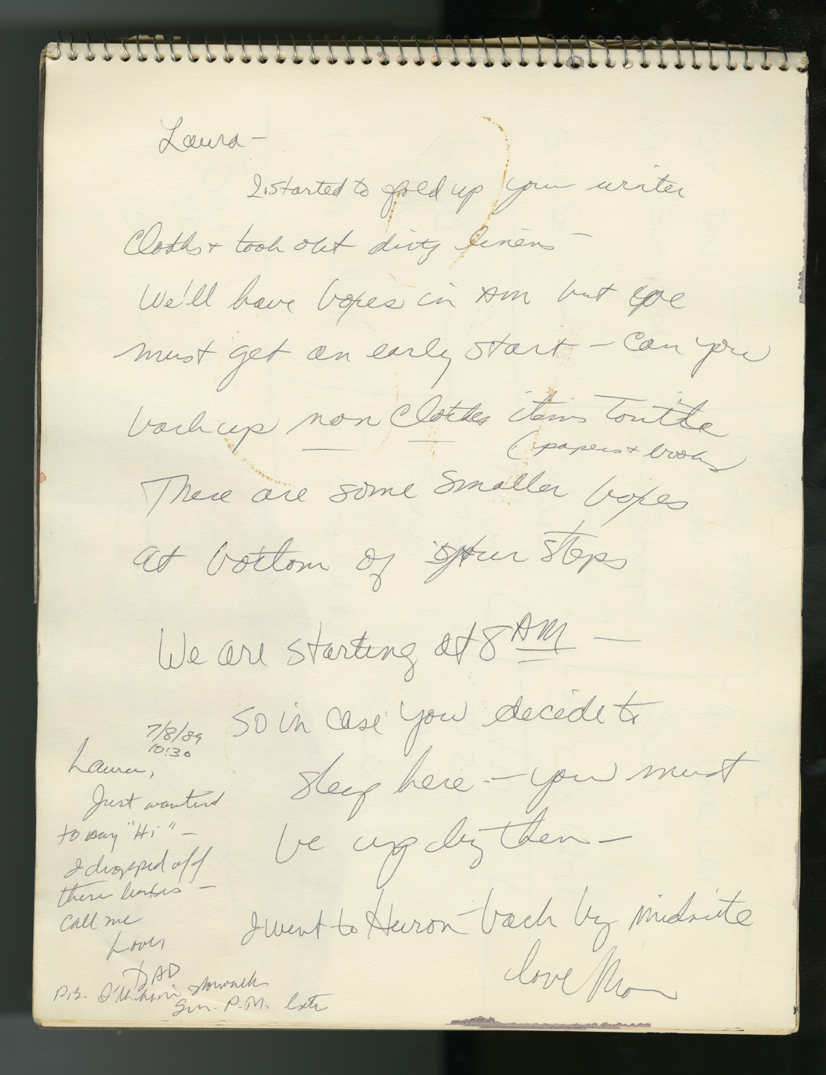 Laura -
I started to fold up your winter
Cloths + took out dirty linens -
We'll have boxes in AM but we
must get an early start - Can you
pack up non Clothes items Tonite
(papers + books)
There are some smaller boxes
at bottom of your steps
We are starting at 8 AM -
So in case you decide to
sleep here - you must
be up by then -
I went to Huron - back by midnite
love Mom
7/8/89
10:30
Laura,
Just wanted
to say "Hi" -
I dropped off
these boxes -
call me
Love,
DAD
P.S. I'll be in
Sun. P.M. late